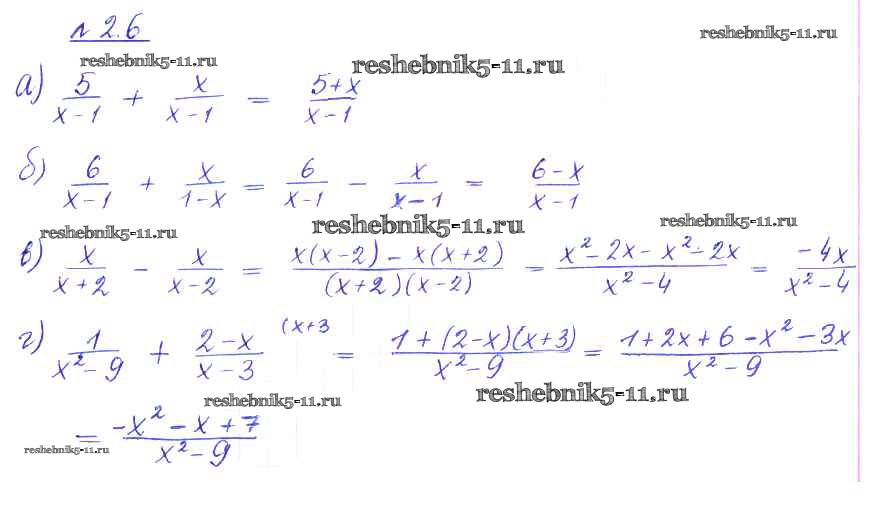 № 2.6
reshebnik5-11.ru reshebnik5-11.ru reshebnik5-11.ru
а) 5/(x-1) + x/(x-1) = (5+x)/(x-1)
б) 6/(x-1) + x/(1-x) = 6/(x-1) - x/(x-1) = (6-x)/(x-1)
reshebnik5-11.ru reshebnik5-11.ru reshebnik5-11.ru
в) x/(x+2) - x/(x-2) = (x(x-2) - x(x+2))/((x+2)(x-2)) = (x²-2x-x²-2x)/(x²-4) = -4x/(x²-4)
г) 1/(x²-9) + (2-x)/(x-3) (x+3 = (1+(2-x)(x+3))/(x²-9) = (1+2x+6-x²-3x)/(x²-9)
reshebnik5-11.ru reshebnik5-11.ru
= (-x²-x+7)/(x²-9)
reshebnik5-11.ru